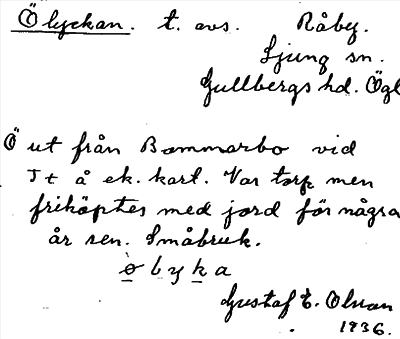 Ölyckan. t. avs. Råby.
Ljung sn.
Gullbergs hd. Ögl
Ö ut från Bommarbo vid
Tt å ek. kart. Var torp men
friköptes med jord för några
år sen. Småbruk.
ø̀ l y k a
Gustaf E. Olson
1936.